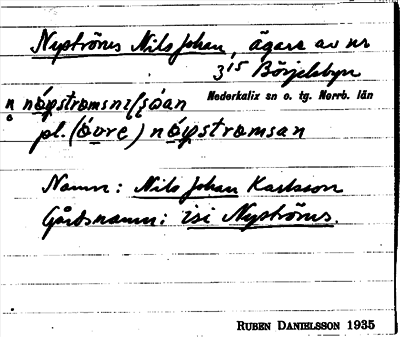 Nyströms Nils Johan, ägare av nr
3¹⁵ Börjelsbyn
Nederkalix sn o. tg. Norrb. län
pl. (óvre) nóystromsan
Namn: Nils Johan Karlsson
Gårdsnamn: isi Nyströms.
RUBEN DANIELSSON 1935